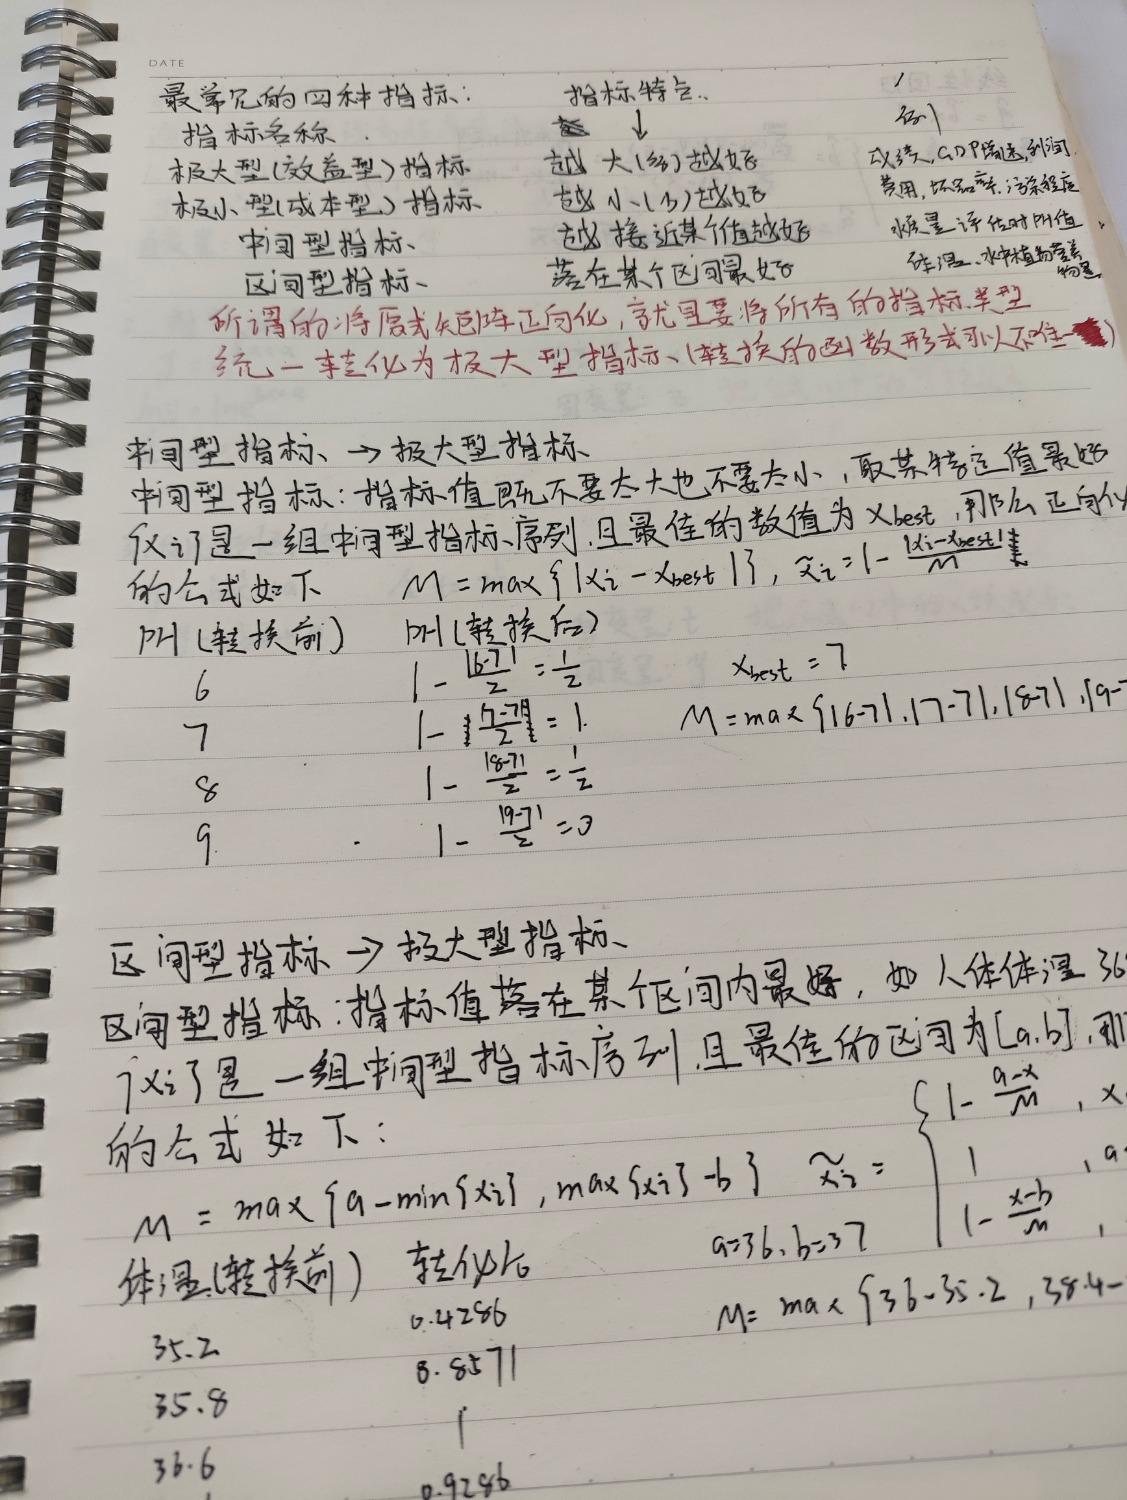 DATE
最常见的四种指标: 指标特点 例
指标名称 ↓
极大型(效益型)指标 越大(多)越好 成绩,GDP增速,利润
极小型(成本型)指标 越小(少)越好 费用,坏品率,污染程度
中间型指标 越接近某个值越好 水质量评估时PH值
区间型指标 落在某个区间最好 体温、水中植物营养物量
所谓的将原式矩阵正向化,就是要将所有的指标类型
统一转化为极大型指标(转换的函数形式可以不唯一)
中间型指标 → 极大型指标
中间型指标:指标值既不要太大也不要太小,取某特定值最好
{xi}是一组中间型指标序列,且最佳的数值为xbest,那么正向化
的公式如下 M=max{|xi-xbest|}, x̃i=1-|xi-xbest|/M
PH(转换前) PH(转换后)
6 1-|6-7|/2=1/2 xbest=7
7 1-|7-7|/2=1 M=max{|6-7|,|7-7|,|8-7|,|9-7
8 1-|8-7|/2=1/2
9 1-|9-7|/2=0
区间型指标 → 极大型指标
区间型指标:指标值落在某个区间内最好,如人体体温36
{xi}是一组中间型指标序列,且最佳的区间为[a,b],那
的公式如下:
M=max{a-min{xi},max{xi}-b} x̃i={1-(a-x)/M, x
1, a
1-(x-b)/M,
体温(转换前) 转化后 a=36,b=37
35.2 0.4286 M=max{36-35.2,38.4-
35.8 0.8571
36.6 1
0.9286